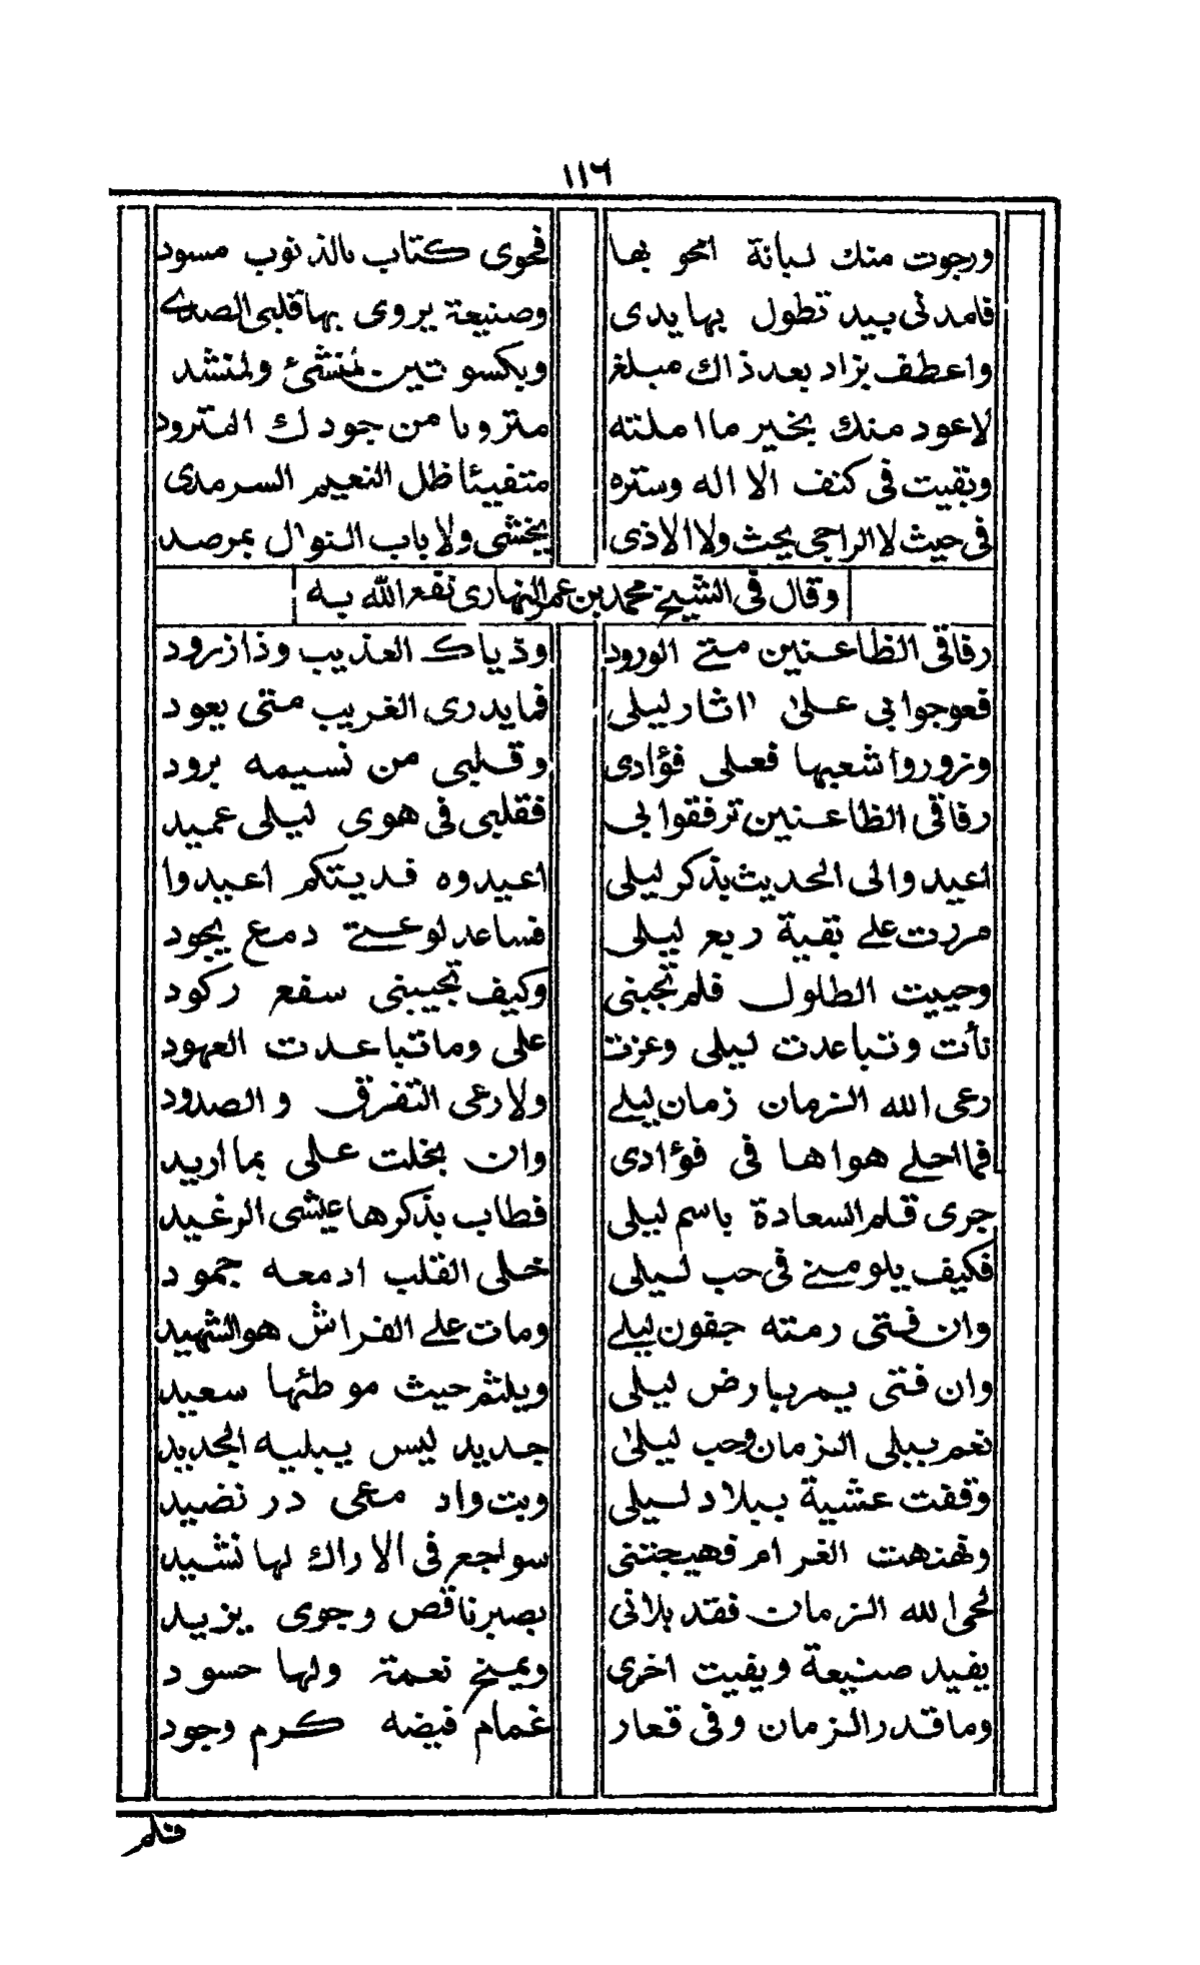 ١١٦
ورجوت منك لبانة امحو بها فحوى كتاب بالذنوب مسود
فامدنى بيد تطول بها يدى وصنيعة يروى بها قلبى الصدى
واعطف بزاد بعد ذاك مبلغ وبكسوتين لمنشئ ولمنشد
لاعود منك بخير ما املته متزودا من جودك المتزود
وبقيت فى كنف الاله وستره متفيئا ظل النعيم السرمدى
فى حيث لا الراجى يحث ولا الاذى يخشى ولا باب النوال بمرصد
وقال فى الشيخ محمد بن عمر النهارى نفع الله به
رفاقى الظاعنين متى الورود وذياك العذيب وذا زرود
فعوجوا بى على اثار ليلى فما يدرى الغريب متى يعود
وزوروا شعبها فعلى فؤادى وقلبى من نسيمه برود
رفاقى الظاعنين ترفقوا بى فقلبى فى هوى ليلى عميد
اعيدوا لى الحديث بذكر ليلى اعيدوه فديتكم اعيدوا
مررت على بقية ربع ليلى فساعد لوعتى دمع يجود
وحييت الطلول فلم تجبنى وكيف تجيبنى سفع ركود
نأت وتباعدت ليلى وعزت على وما تباعدت العهود
رعى الله الزمان زمان ليلى ولا رعى التفرق والصدود
فما احلى هواها فى فؤادى وان بخلت على بما اريد
جرى قلم السعادة باسم ليلى فطاب بذكرها عيشى الرغيد
فكيف يلومنى فى حب ليلى خلى القلب ادمعه جمود
وان فتى رمته جفون ليلى ومات على الفراش هو الشهيد
وان فتى يمر بارض ليلى ويلثم حيث موطئها سعيد
نعم يبلى الزمان وحب ليلى جديد ليس يبليه الجديد
وقفت عشية ببلاد ليلى وبت واد معى در نضيد
ونهنهت الغرام فهيجتنى سواجع فى الاراك لها نشيد
لحى الله الزمان فقد بلانى بصبر ناقص وجوى يزيد
يفيد صنيعة ويفيت اخرى ويمنح نعمة ولها حسود
وما قدر الزمان وفى قعار غمام فيضه كرم وجود
فلم